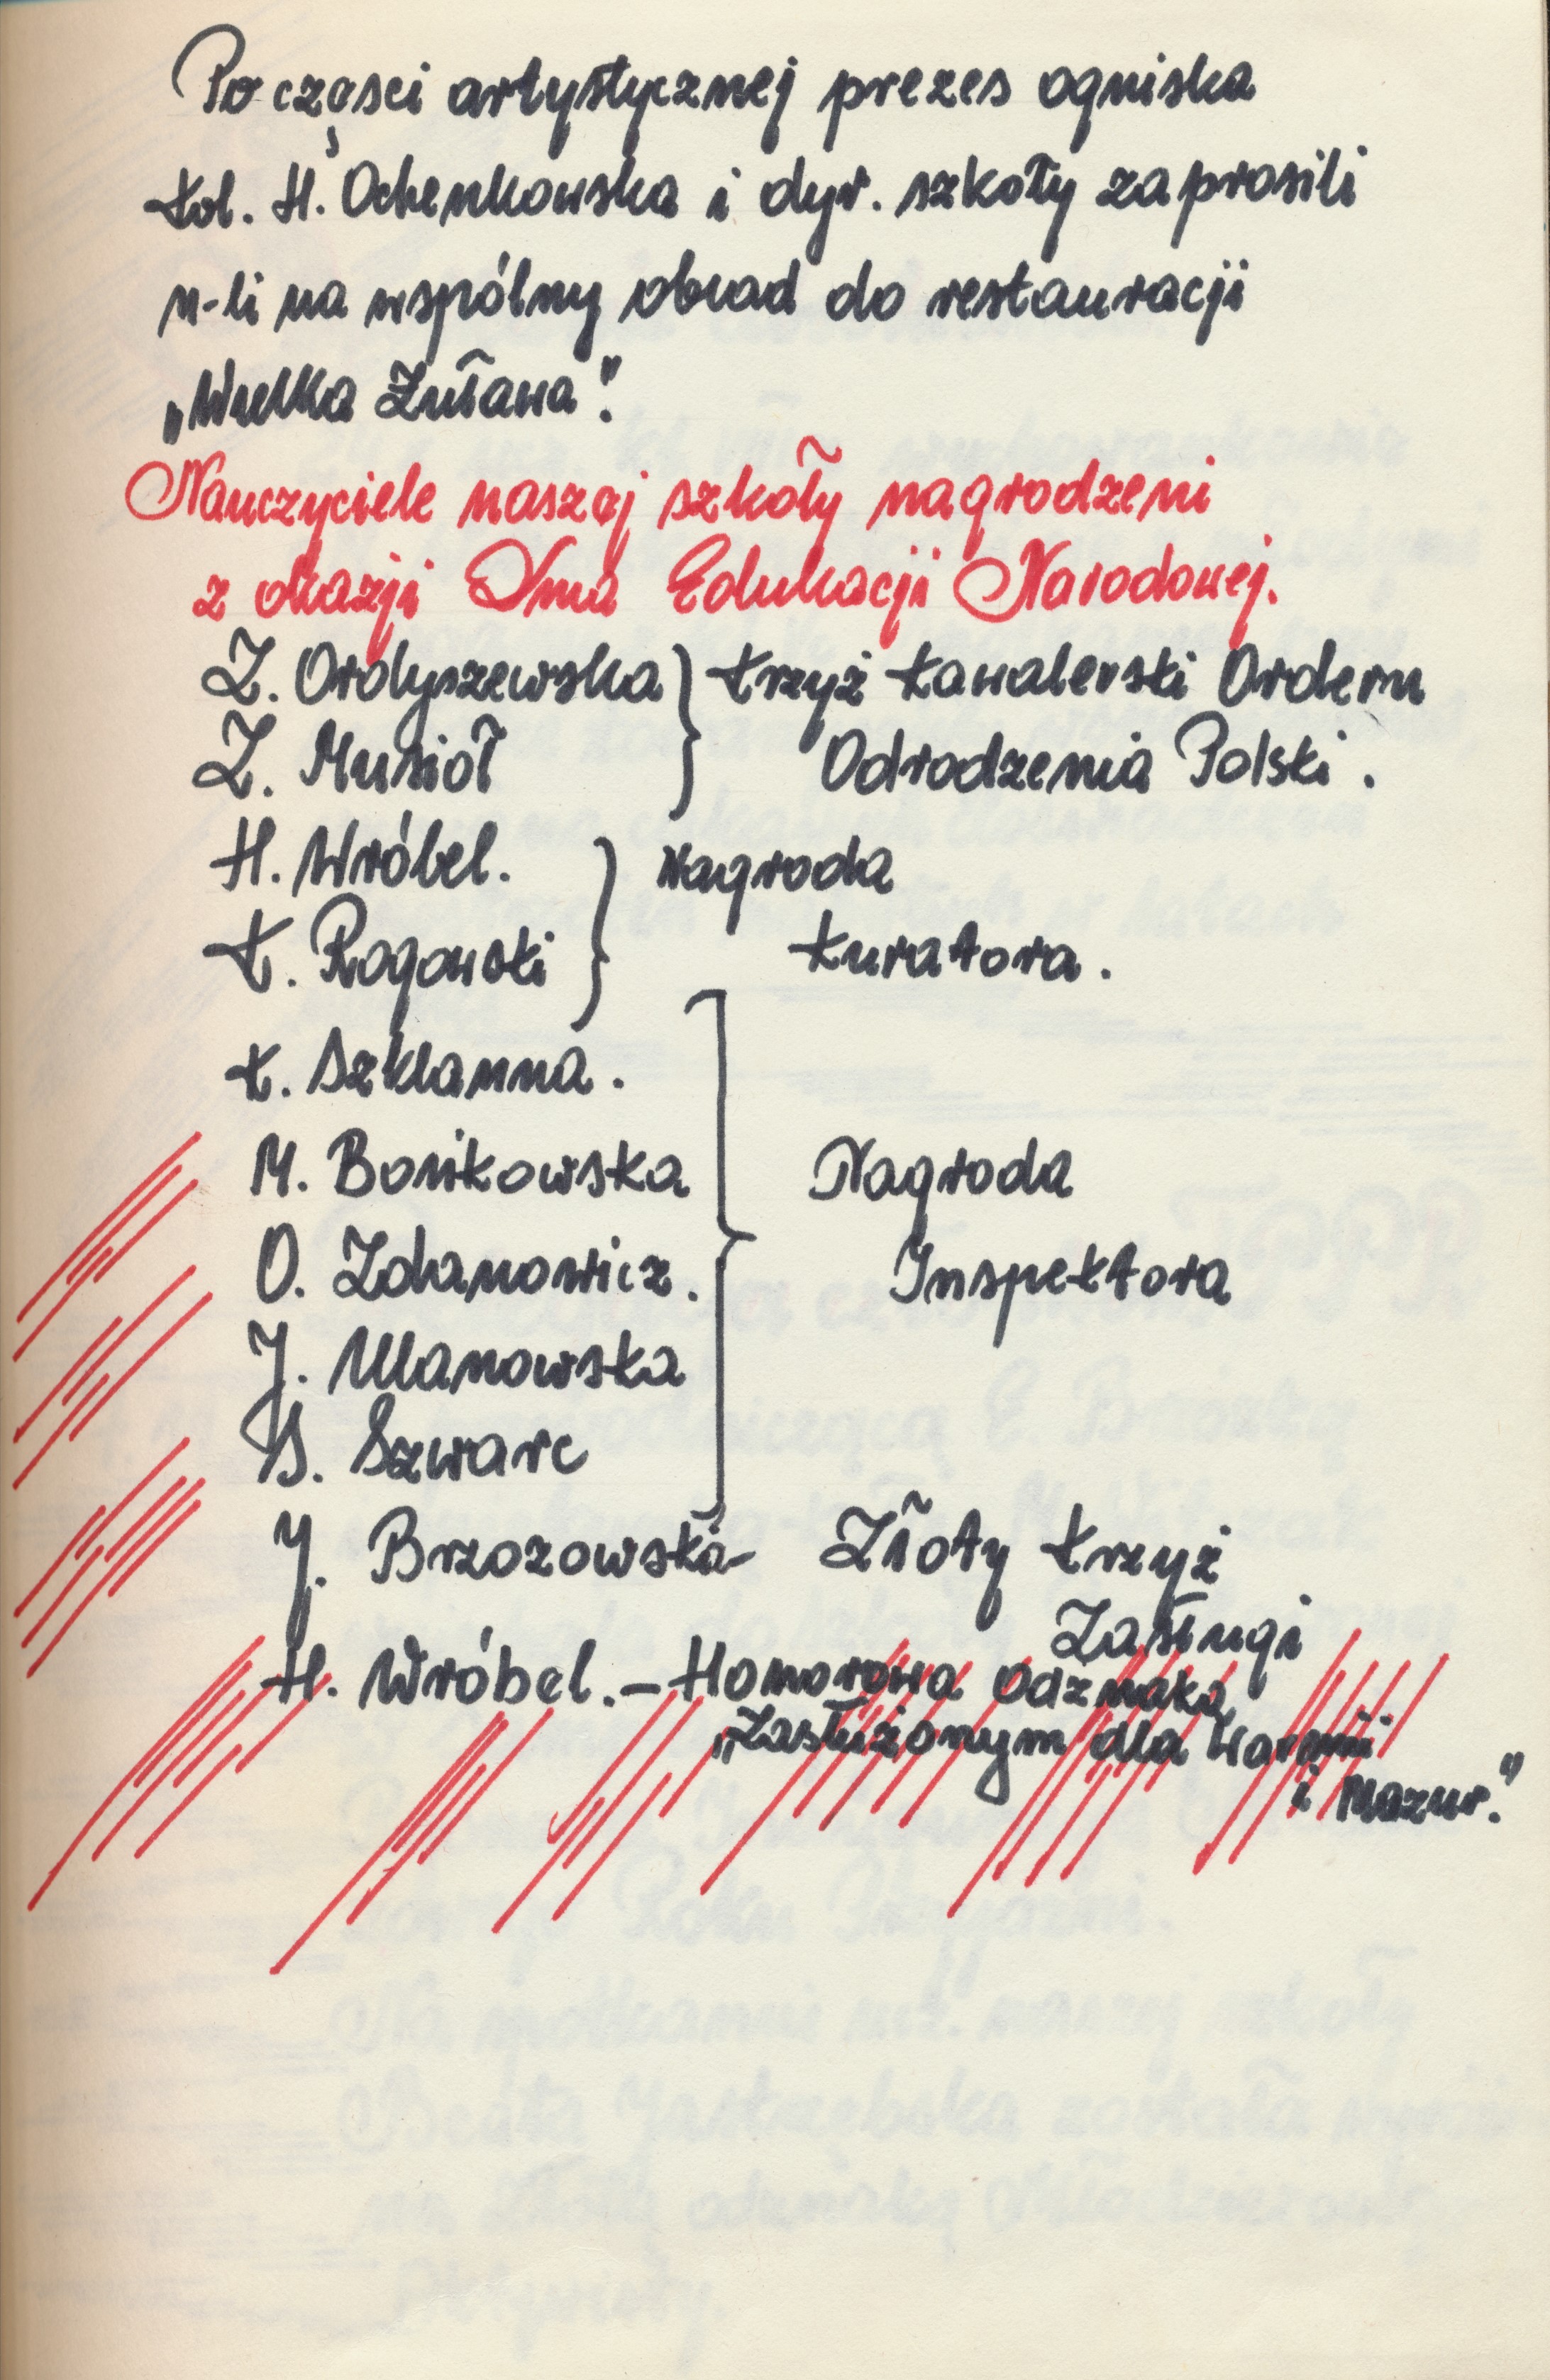 Po częsci artystycznej prezes ogniska
kol. H. Ochenkowska i dyr. szkoły zaprosili
n-li na wspólny obiad do restauracji
„Wielka Żuława".
Nauczyciele naszej szkoły nagrodzeni
z okazji Dnia Edukacji Narodowej.
Z. Ordyszewska } Krzyż Kawalerski Orderu
Z. Musioł } Odrodzenia Polski.
H. Wróbel. } Nagroda
K. Rogowski } Kuratora.
K. Szklanna.
M. Bonikowska Nagroda
O. Zdanowicz. Inspektora
J. Ulanowska
B. Szwarc
J. Brzozowska- Złoty Krzyż
Zasługi
H. Wróbel. - Honorowa Odznaka
„Zasłużonym dla Warmii
i Mazur."